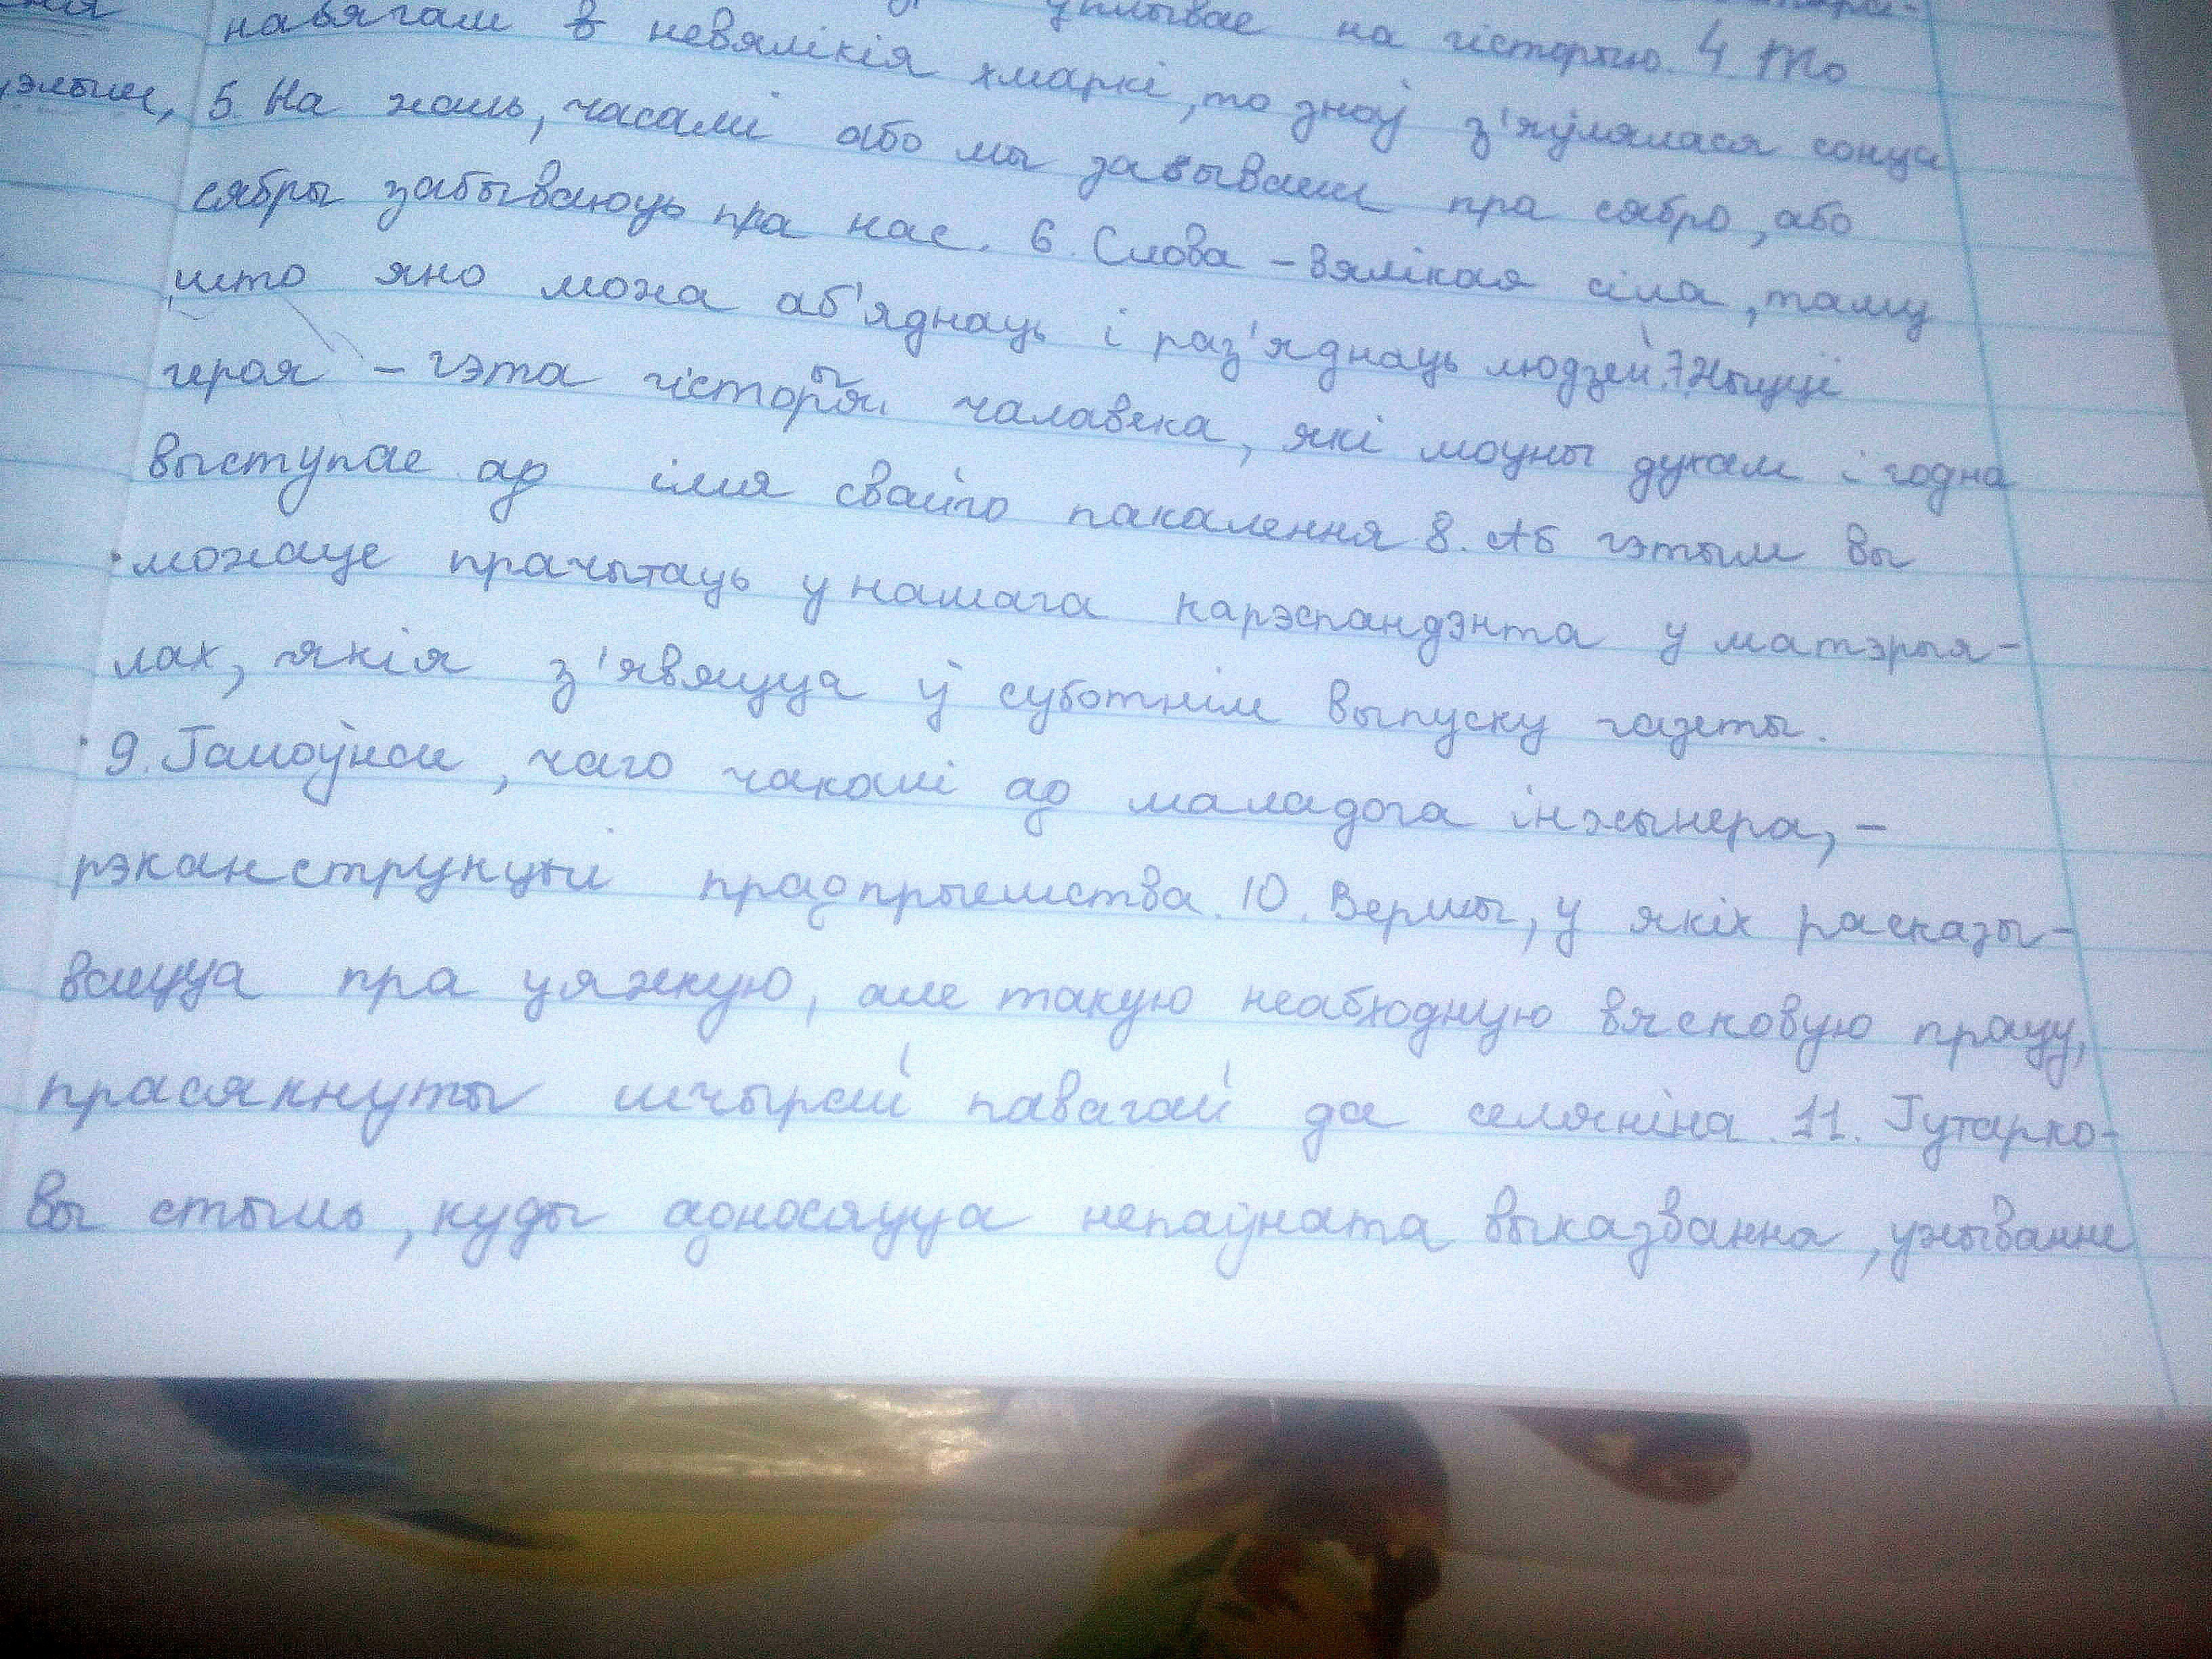 уплывае на гісторыю. 4. То
навягам в невялікія хмаркі, то зноў з'яўлялася сонца
5. На жаль, часамі або мы забываем пра сябро, або
сябры забываюць пра нас. 6. Слова - вялікая сіла, таму
што яно можа аб'яднаць і раз'яднаць людзей. 7. Жыцці
героя - гэта гісторыя чалавека, які моцны духам і годна
выступае ад імя свайго пакалення 8. Аб гэтым вы
можаце прачытаць у нашага карэспандэнта у матэрыя-
лах, якія з'явяцца ў суботнім выпуску газеты.
9. Галоўнае, чаго чакалі ад маладога інжынера, -
рэканструкцыі прадпрыемства. 10. Вершы, у якіх расказы-
ваецца пра цяжкую, але такую неабходную вясковую працу,
прасякнуты шчырай павагай да селяніна. 11. Гутарко-
вы стыль, куды адносяцца непаўната выказвання, ужыванне